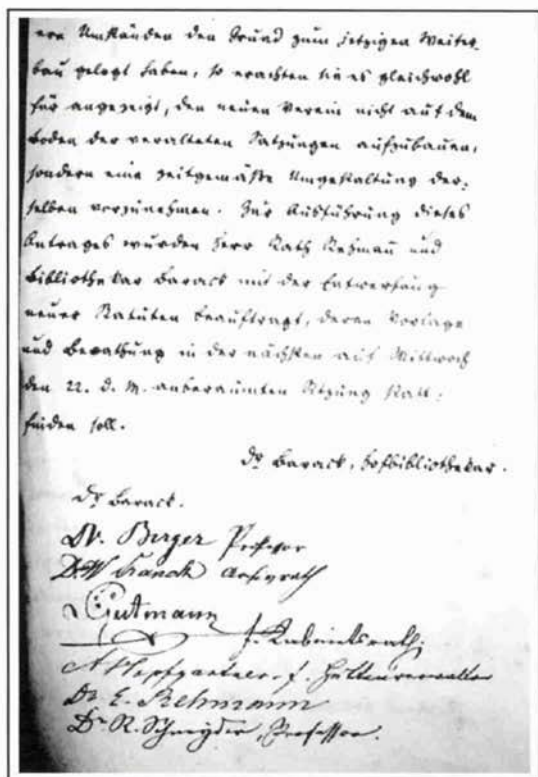 ern Umständen den Grund zum jetzigen Weiter-
bau gelegt haben, so erachten sie es gleichwohl
für angezeigt, den neuen Verein nicht auf dem
Boden der veralteten Satzungen aufzubauen,
sondern eine zeitgemäße Umgestaltung der-
selben vorzunehmen. Zur Ausführung dieses
Antrages wurden Herr Rath Rehmañ und
Bibliothekar Barack mit der Entwerfung
neuer Statuten beauftragt, deren Vorlage
und Berathung in der nächsten auf Mittwoch
den 22. d. M. anberaumten Sitzung statt-
finden soll.
Dr Barack, Hofbibliothekar.
Dr Barack.
Dr. Professor
Dr W Franck Archivrath
Gutmann
f. Kabinetsrath;
A Hopfgartner f. Hüttenverwalter
Dr E. Rehmann
Dr R. Schnyder, Professor.